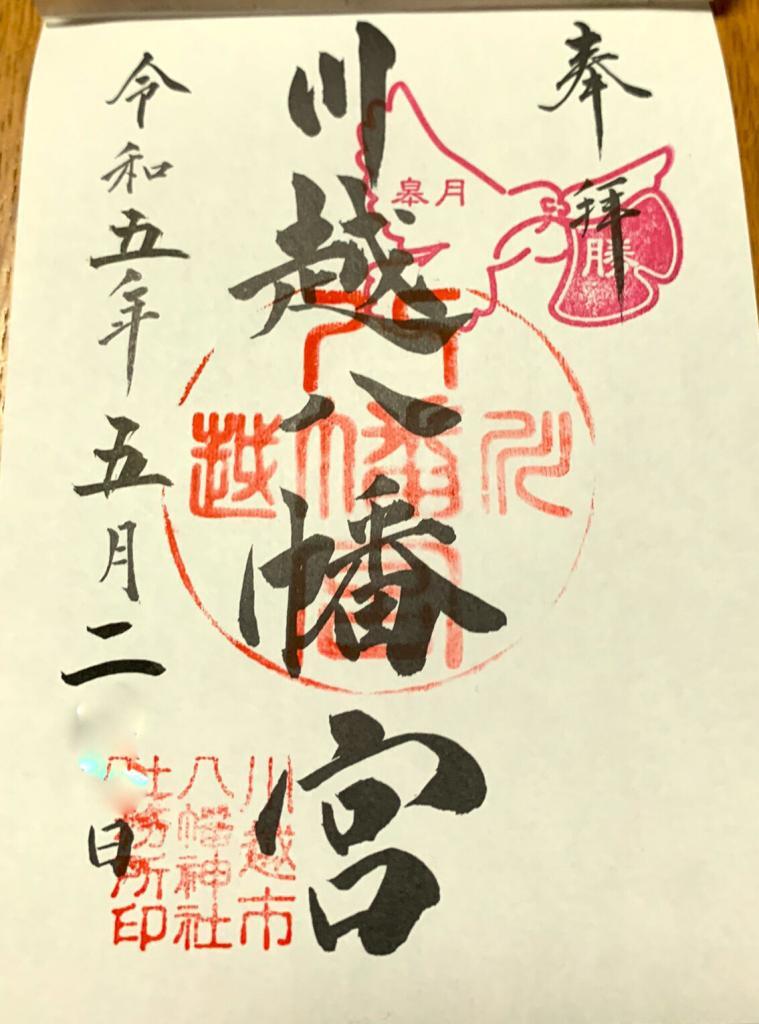 奉拝
皐月
勝
川越八幡宮
川越
八幡宮
川越市
八幡神社
社務所印
令和五年五月二
日